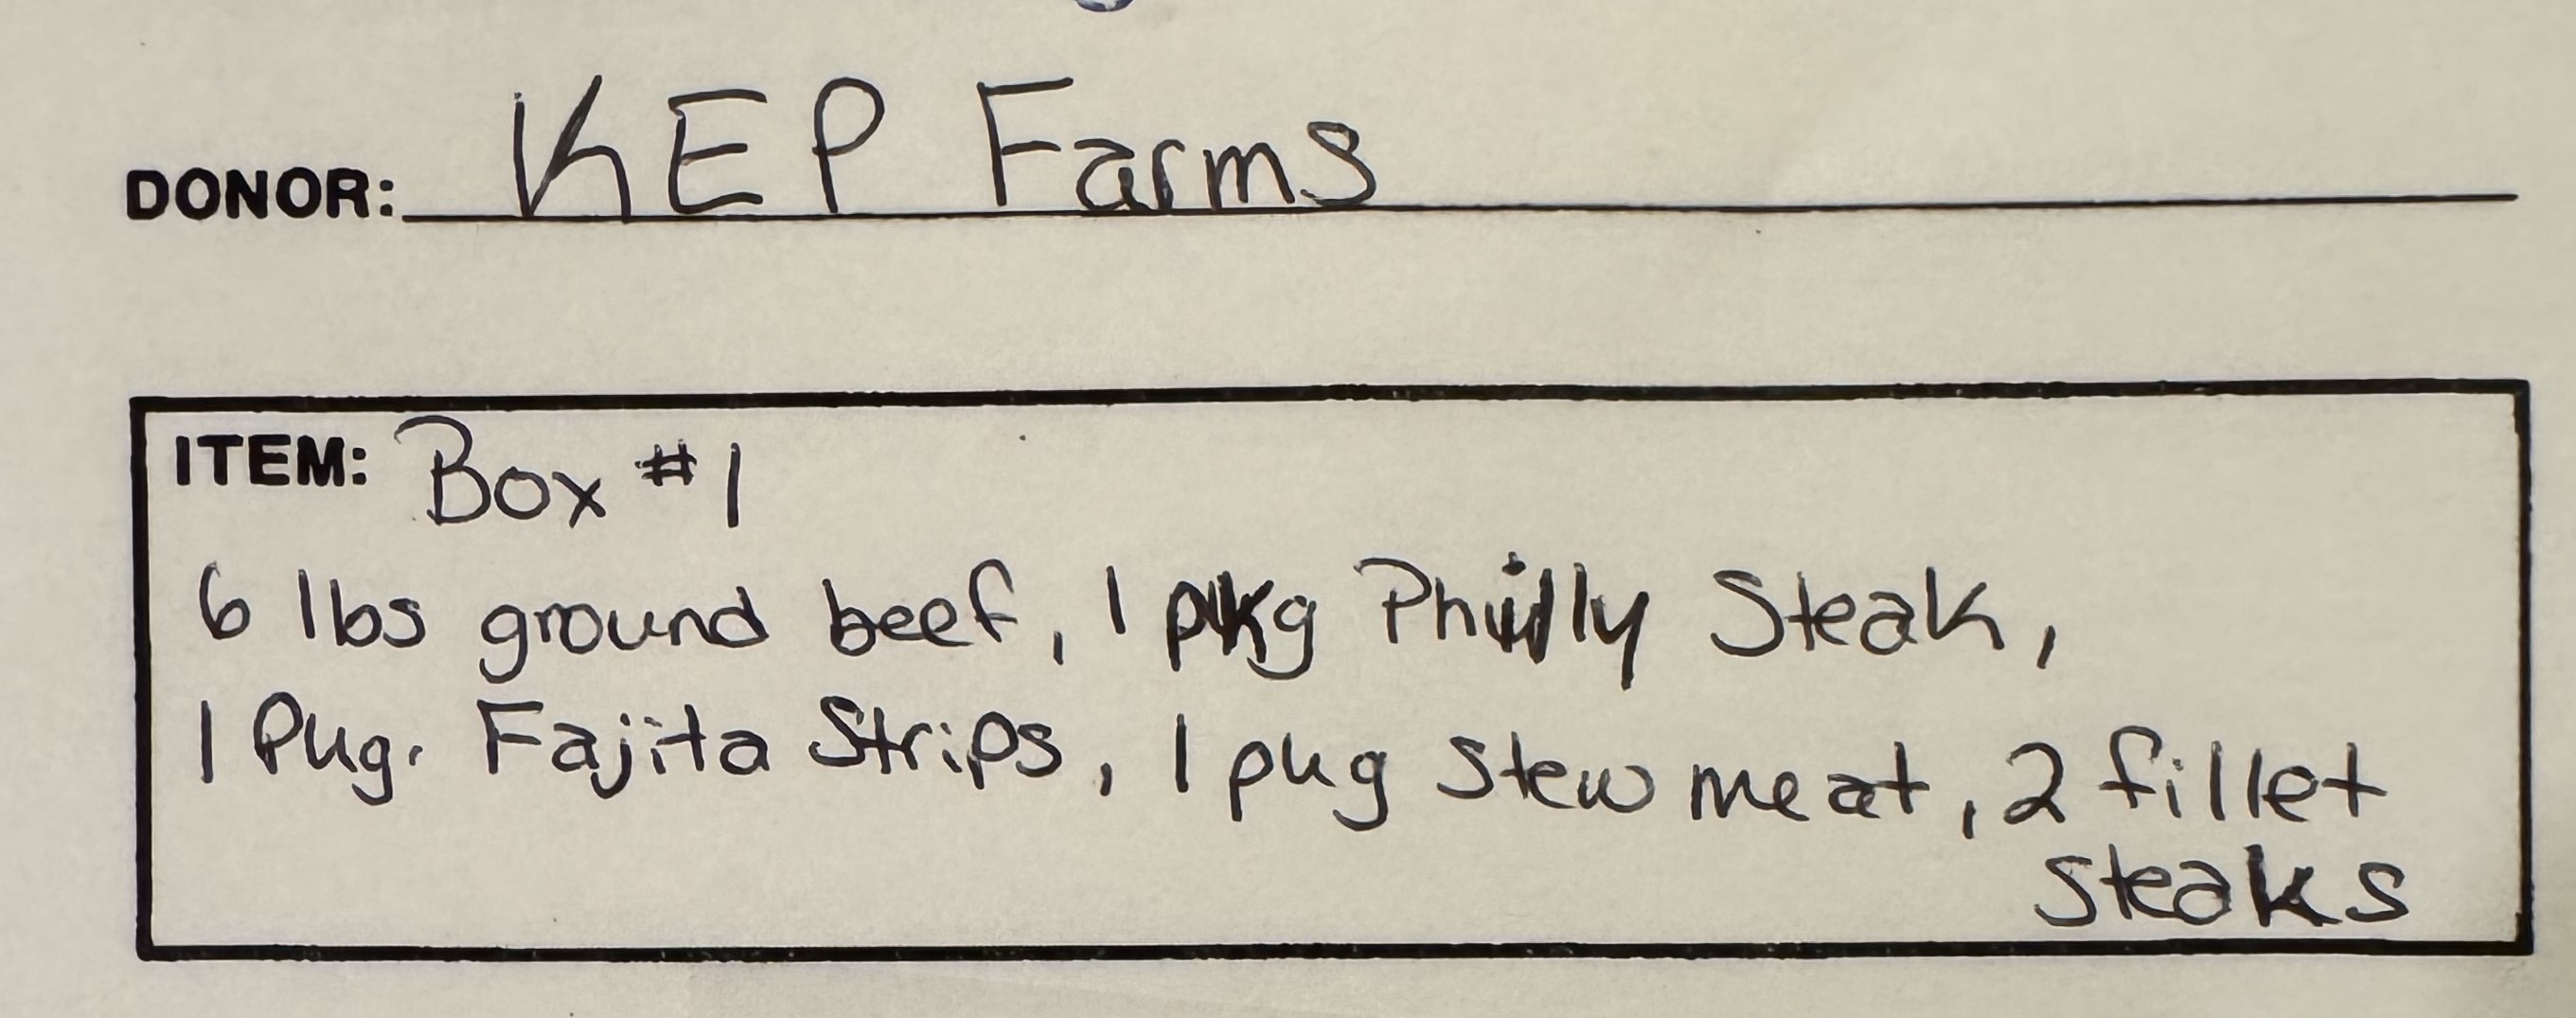 DONOR: KEP Farms
ITEM: Box #1
6 lbs ground beef, 1 pkg Philly Steak,
1 Pkg. Fajita Strips, 1 pkg stew meat, 2 fillet
steaks